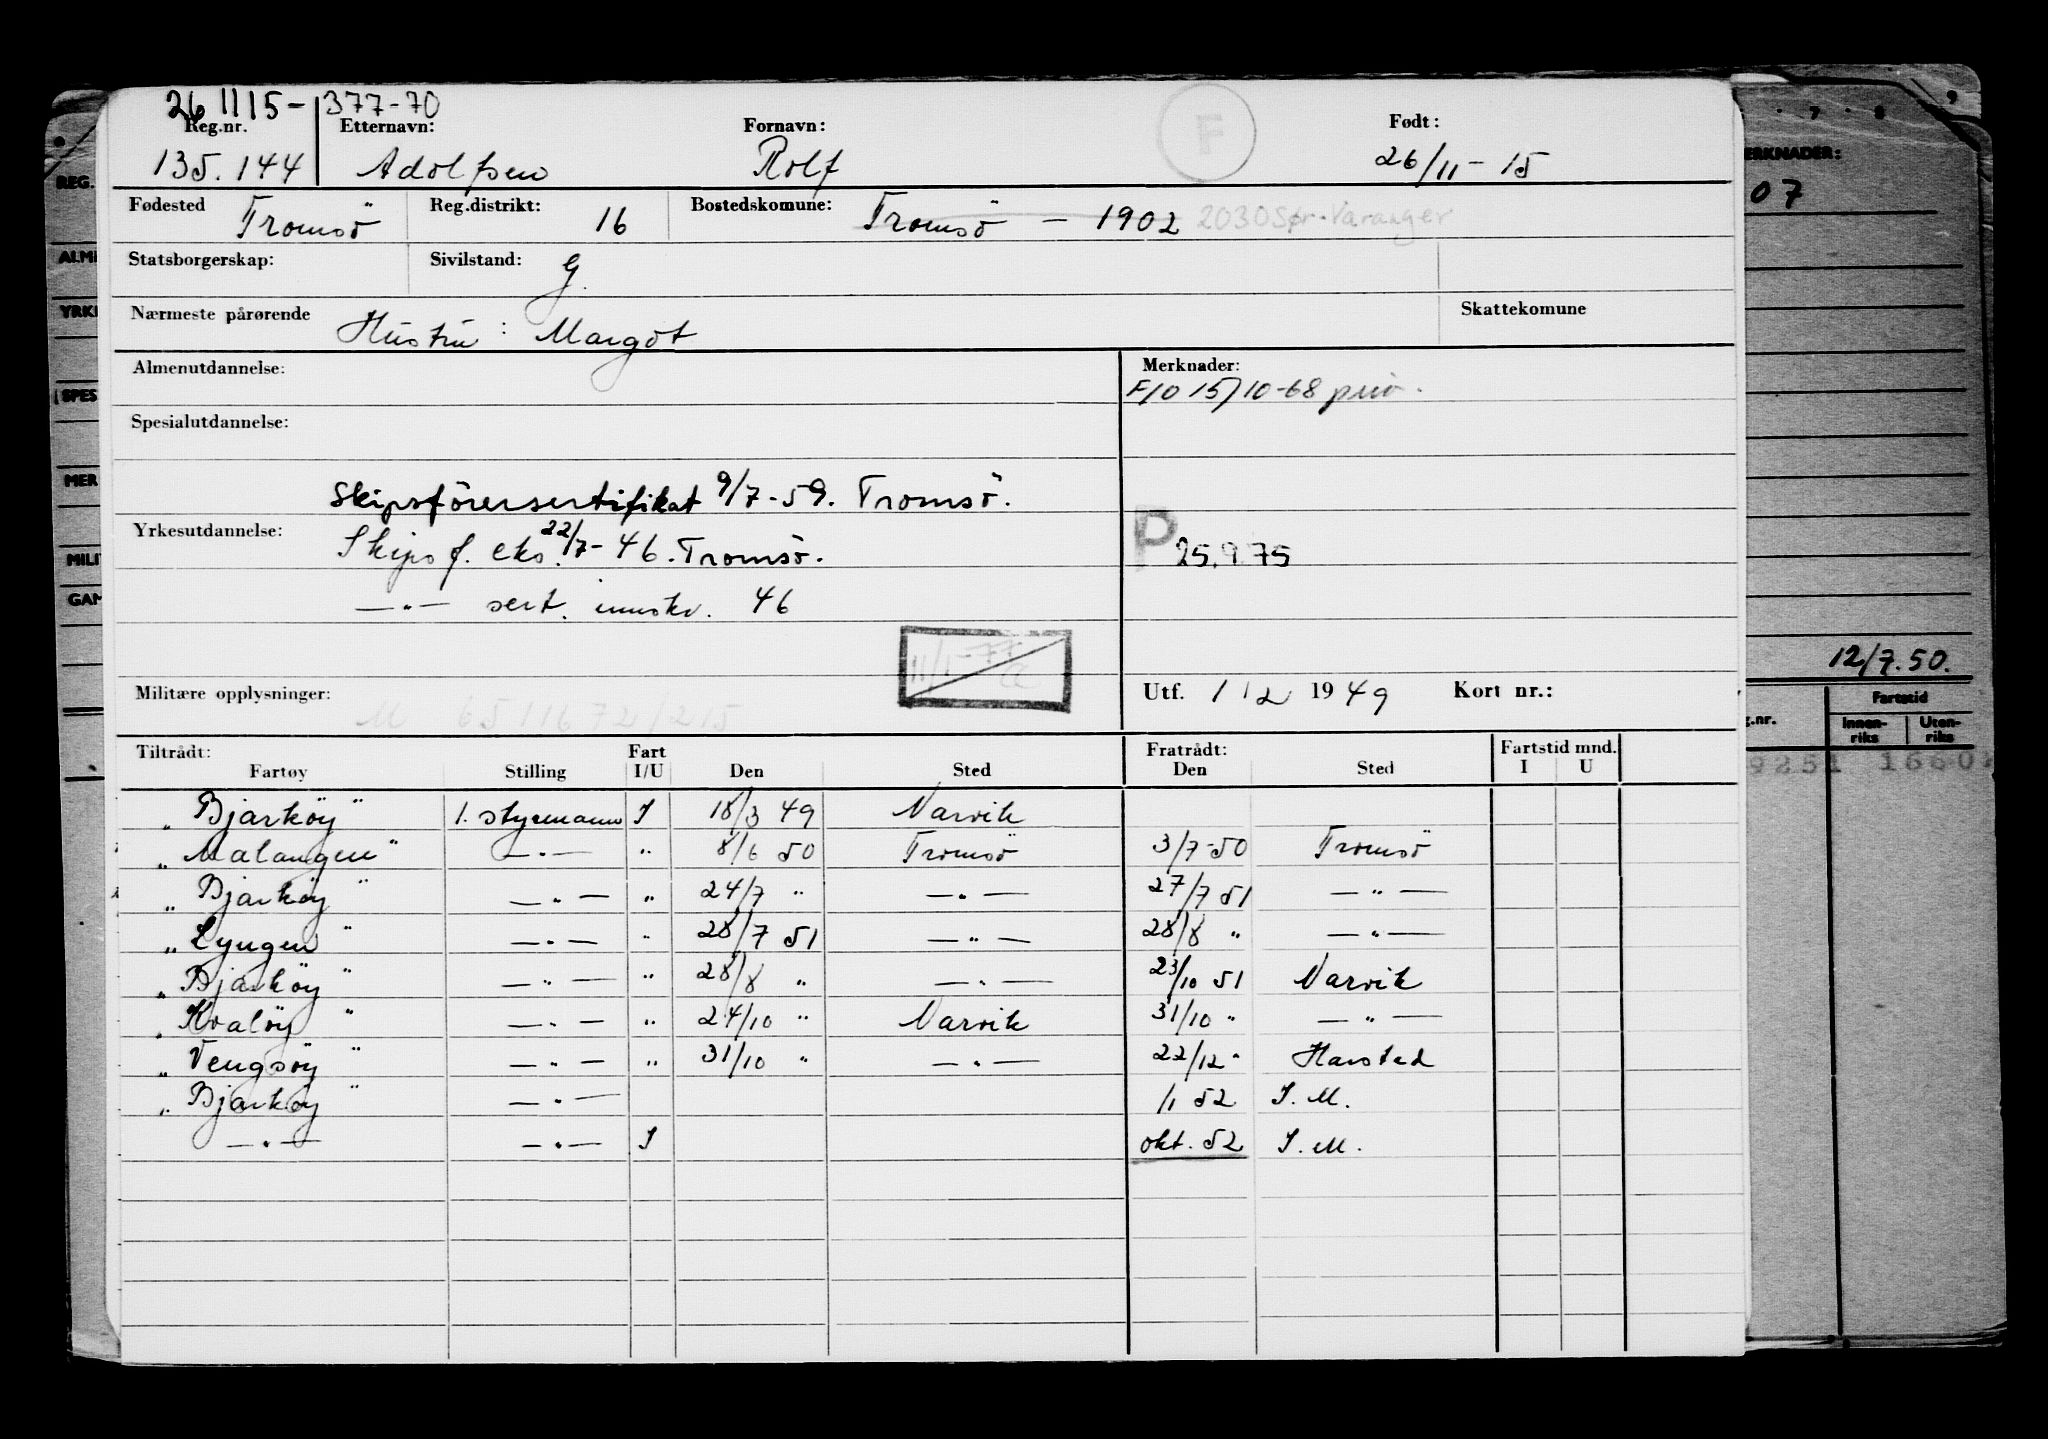 26 11 15 - 377-70
Reg.nr. Etternavn: Fornavn: F Født:
135.144 Adolfsen Rolf 26/11-15
Fødested Tromsö Reg.distrikt: 16 Bostedskomune: Tromsö - 1902 2030 Sør-Varanger
Statsborgerskap: Sivilstand: G.
Nærmeste pårørende Hustru: Margot Skattekomune
Almenutdannelse: Merknader:
F/O 15/10-68 priv.
Spesialutdannelse:
Skipsförersertifikat 9/7-59. Tromsö.
Yrkesutdannelse: Skipsf. eks. 22/7-46. Tromsö. P 25.9.75
—"— sert. innskr. 46
11/1-77
Militære opplysninger: Utf. 1/2 1949 Kort nr.:
M 6511672/215
Tiltrådt: Fart Fratrådt: Fartstid mnd.
Fartøy Stilling I/U Den Sted Den Sted I U
"Bjarköy" 1. styrmann I 18/3 49 Narvik
"Malangen" —"— " 8/6 50 Tromsö 3/7-50 Tromsö
"Bjarköy" —"— " 24/7 " —"— 27/7 51 —"—
"Lyngen" —"— " 28/7 51 —"— 28/8 " —"—
"Bjarköy" —"— " 28/8 " —"— 23/10 51 Narvik
"Kvalöy" —"— " 24/10 " Narvik 31/10 " —"—
"Vengsöy" —"— " 31/10 " —"— 22/12 " Harstad
"Bjarköy" —"— /1 52 I. M.
—"— —"— I okt. 52 I. M.
REG.
ALM
YRK
SPES
MER
MILI
GAM
7 8 9
ERKNADER:
07
12/7.50.
Fartstid
g.nr. Innen-riks Uten-riks
9251